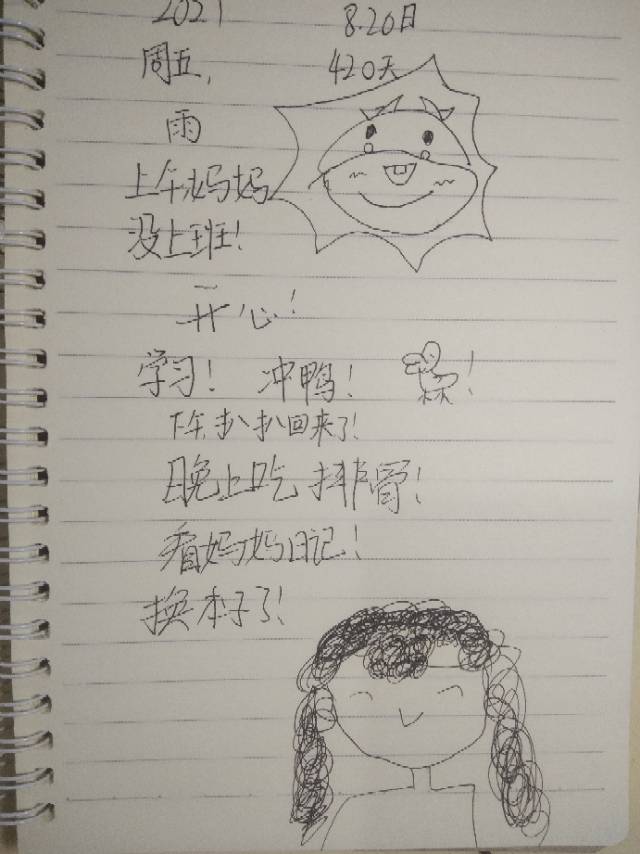 2021 8.20日
周五, 420天
雨
上午妈妈
没上班!
开心!
学习! 冲鸭! !
下午扒扒回来了!
晚上吃排骨!
看妈妈日记!
换本子了!